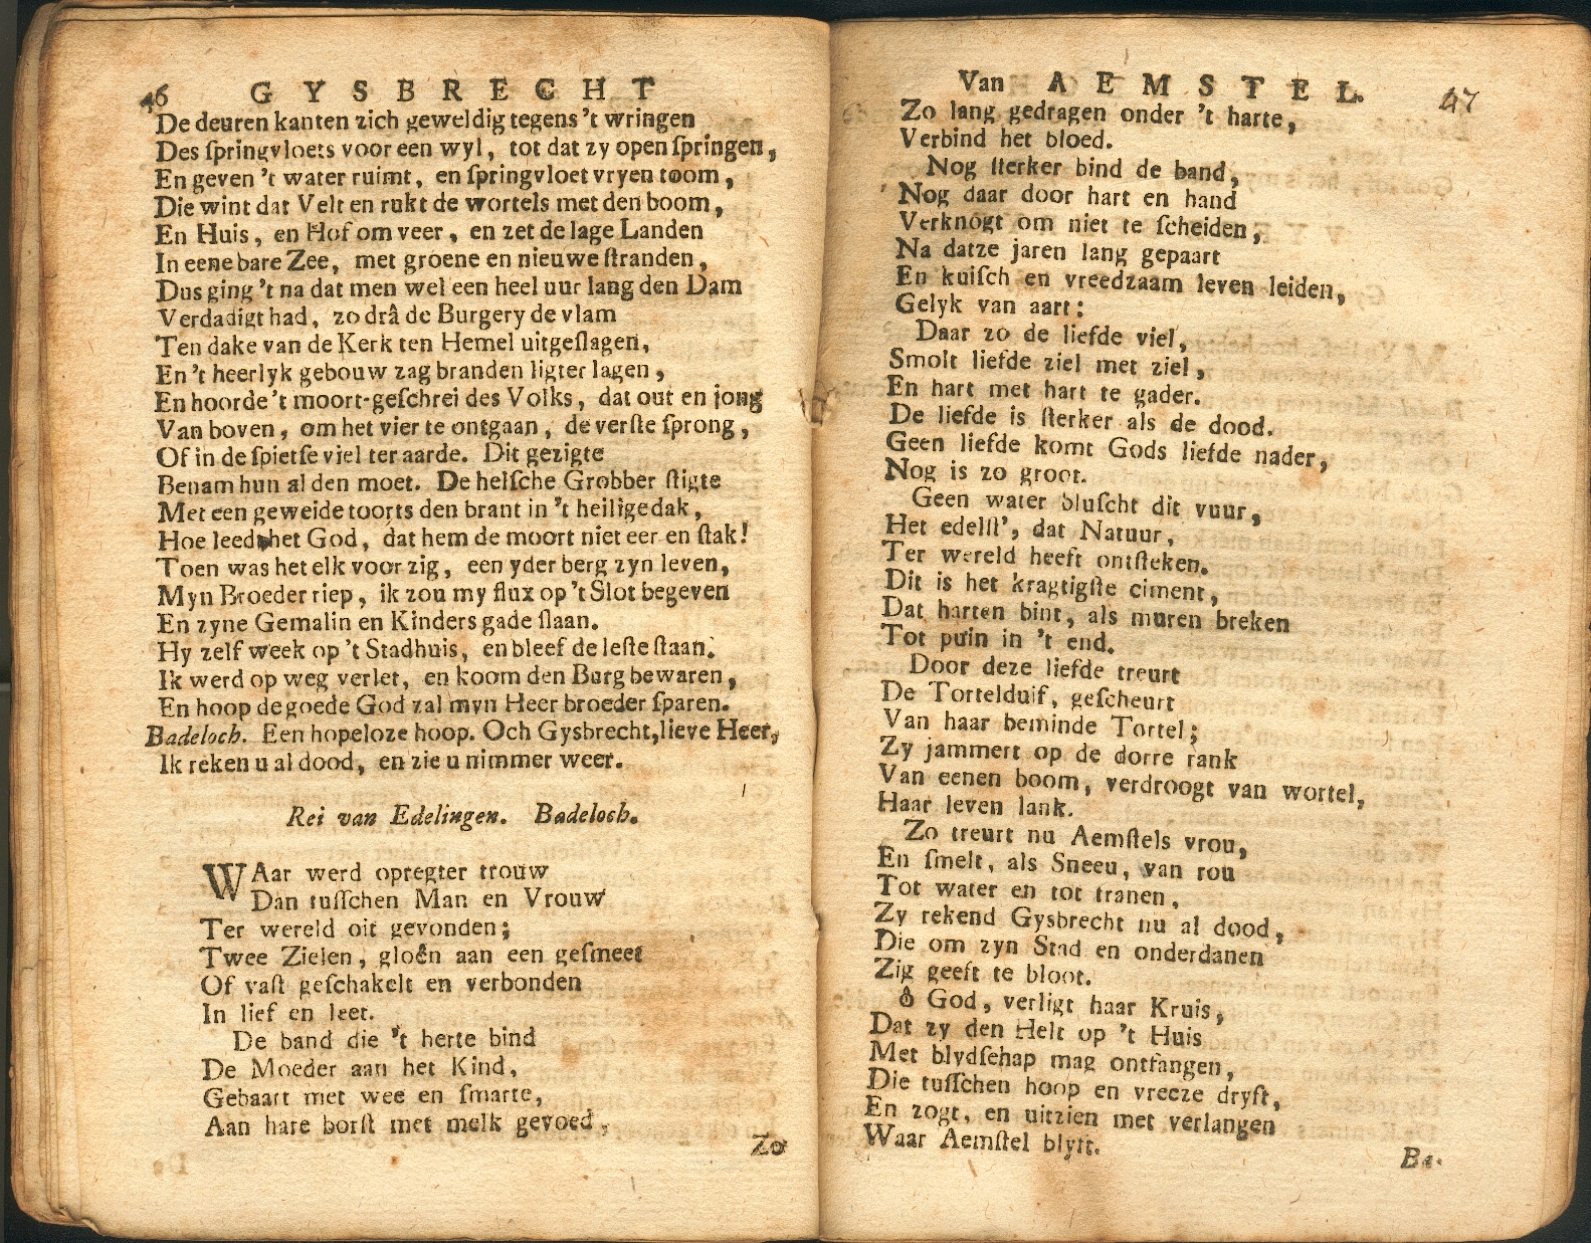 46 GYSBRECHT
De deuren kanten zich geweldig tegens 't wringen
Des ſpringvloets voor een wyl, tot dat zy open ſpringen,
En geven 't water ruimt, en ſpringvloet vryen toom,
Die wint dat Velt en rukt de wortels met den boom,
En Huis, en Hof om veer, en zet de lage Landen
In eene bare Zee, met groene en nieuwe ſtranden,
Dus ging 't na dat men wel een heel uur lang den Dam
Verdadigt had, zo drâ de Burgery de vlam
Ten dake van de Kerk ten Hemel uitgeſlagen,
En 't heerlyk gebouw zag branden ligter lagen,
En hoorde 't moort-geſchrei des Volks, dat out en jong
Van boven, om het vier te ontgaan, de verſte ſprong,
Of in de ſpietſe viel ter aarde. Dit gezigte
Benam hun al den moet. De helſche Grobber ſtigte
Met een geweide toorts den brant in 't heilige dak,
Hoe leed het God, dat hem de moort niet eer en ſtak!
Toen was het elk voor zig, een yder berg zyn leven,
Myn Broeder riep, ik zou my flux op 't Slot begeven
En zyne Gemalin en Kinders gade ſlaan.
Hy zelf week op 't Stadhuis, en bleef de leſte ſtaan.
Ik werd op weg verlet, en koom den Burg bewaren,
En hoop de goede God zal myn Heer broeder ſparen.
Badeloch. Een hopeloze hoop. Och Gysbrecht, lieve Heer,
Ik reken u al dood, en zie u nimmer weer.
Rei van Edelingen. Badeloch.
WAar werd opregter trouw
Dan tuſſchen Man en Vrouw
Ter wereld oit gevonden;
Twee Zielen, gloên aan een geſmeet
Of vaſt geſchakelt en verbonden
In lief en leet.
De band die 't herte bind
De Moeder aan het Kind,
Gebaart met wee en ſmarte,
Aan hare borſt met melk gevoed,
Zo
Van AEMSTEL. 47
Zo lang gedragen onder 't harte,
Verbind het bloed.
Nog ſterker bind de band,
Nog daar door hart en hand
Verknogt om niet te ſcheiden,
Na datze jaren lang gepaart
En kuiſch en vreedzaam leven leiden,
Gelyk van aart:
Daar zo de liefde viel,
Smolt liefde ziel met ziel,
En hart met hart te gader.
De liefde is ſterker als de dood.
Geen liefde komt Gods liefde nader,
Nog is zo groot.
Geen water bluſcht dit vuur,
Het edelſt', dat Natuur,
Ter wereld heeft ontſteken.
Dit is het kragtigſte ciment,
Dat harten bint, als muren breken
Tot puin in 't end.
Door deze liefde treurt
De Tortelduif, geſcheurt
Van haar beminde Tortel;
Zy jammert op de dorre rank
Van eenen boom, verdroogt van wortel,
Haar leven lank.
Zo treurt nu Aemſtels vrou,
En ſmelt, als Sneeu, van rou
Tot water en tot tranen,
Zy rekend Gysbrecht nu al dood,
Die om zyn Stad en onderdanen
Zig geeft te bloot.
ô God, verligt haar Kruis,
Dat zy den Helt op 't Huis
Met blydſchap mag ontfangen,
Die tuſſchen hoop en vreeze dryft,
En zogt, en uitzien met verlangen
Waar Aemſtel blyft.
Ba-